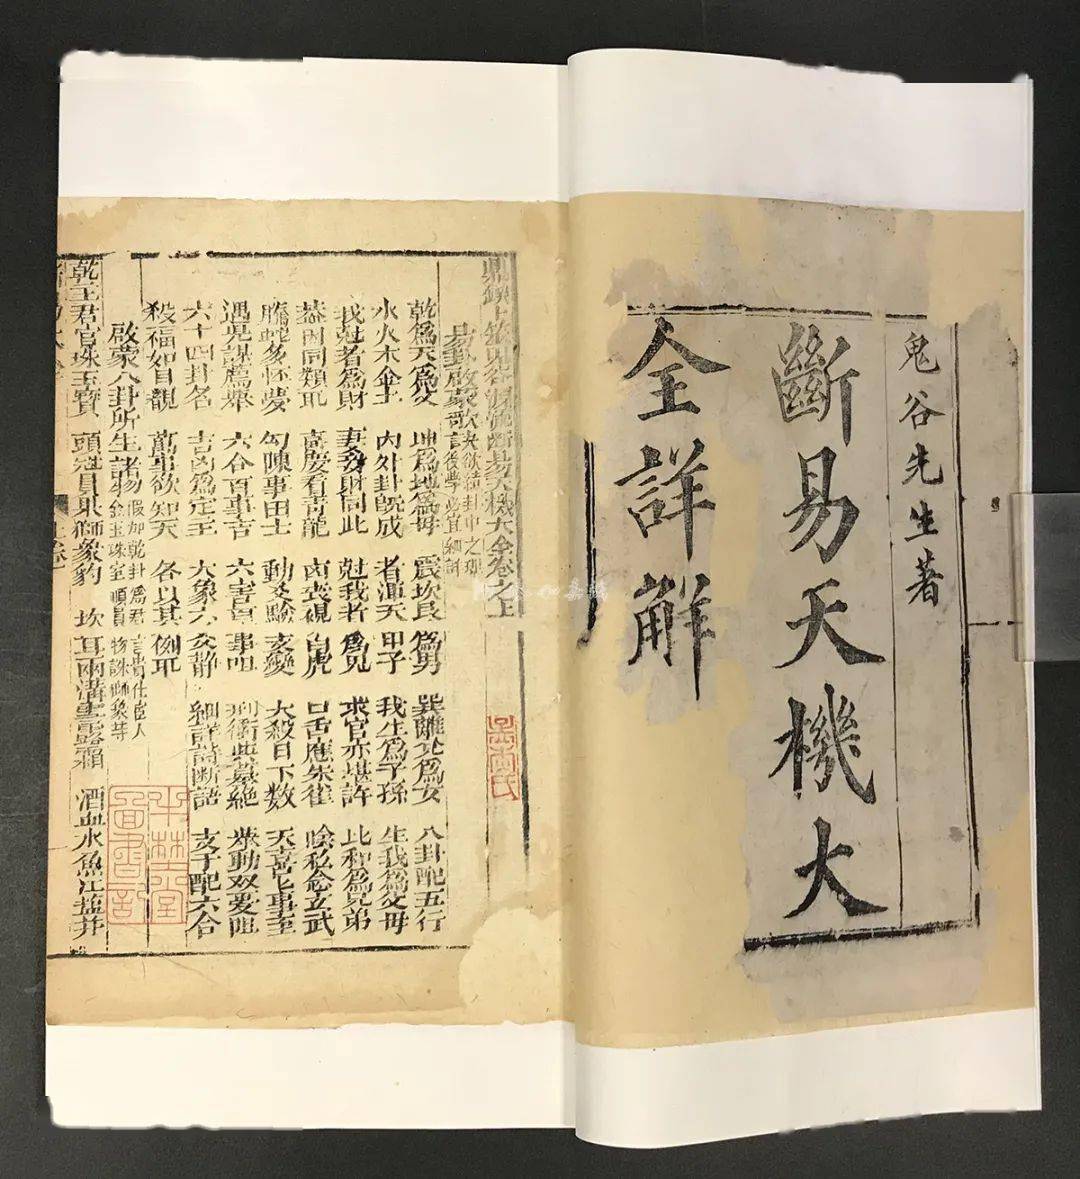 鬼谷先生著
斷易天機大
全詳解
大全卷之上
易卦啟蒙歌
乾爲天爲父 地爲地爲母 震坎艮爲男 巽離兌爲女 八卦配五行
水火木金土 內外卦旣成 者渾天甲子 我生爲子孫 生我爲父母
我尅者爲財 妻妾財同此 尅我者爲 求官亦堪許 比和爲兄弟
同類耴 喜慶看青龍 凶喪視白虎 口舌應朱雀 陰私念玄武
騰蛇多怪夢 勾陳事田土 動爻驗爻變 大殺日下数 天喜七事至
遇見謀薦舉 六合百事吉 六害百事咀 刑衝與墓絶 動双爻阻
六十四卦名 吉凶爲定主 大象六爻静 細詳詩断語 支干配六合
殺福如目覩 萬事欲知天 各以其例耴
啟蒙八卦所生諸物 假如乾卦爲君言貴仕宦人
金玉珠宝順員物 獅象等
乾王君官珠玉寶 頭冠員果獅象豹 坎耳兩溝雲露霜 酒血水魚江塩井